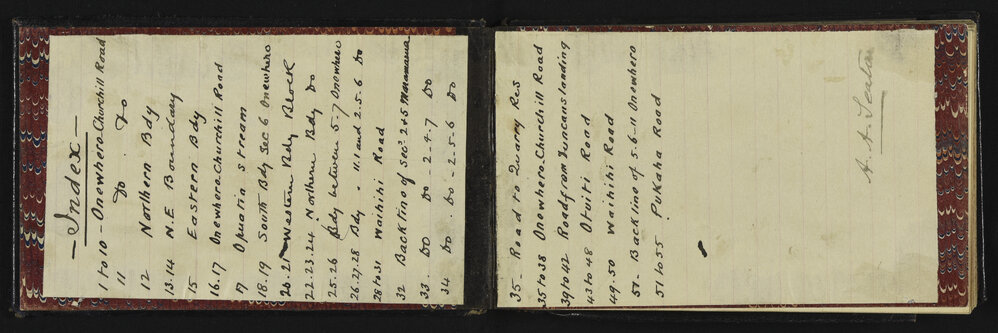 — Index —
1 to 10 - Onewhero-Churchill Road
11 Do Do
12 Northern Bdy
13.14 N.E Boundary
15 Eastern Bdy
16.17 Onewhero-Churchill Road
17 Opuatia Stream
18.19 South Bdy Sec 6 Onewhero
20.21 Western Bdy Block
22.23.24 Northern Bdy Do
25.26 Bdy between 5-7 Onewhero
26.27.28 Bdy " 11.1 and 2.5.6 Do
28 to 31 Waihihi Road
32 Back line of Secs 2 & 5
33. Do Do - 2-4.7 Do
34. Do. Do - 2-5-6 Do
35 - Road to Quarry Res
35 to 38 Onewhero-Churchill Road
39 to 42 Road from Duncans landing
43 to 48 Otuiti Road
49-50 Waihihi Road
50. - Back line of 5.6-11 Onewhero
51 to 55 Pukaha Road
H. A. Seaton